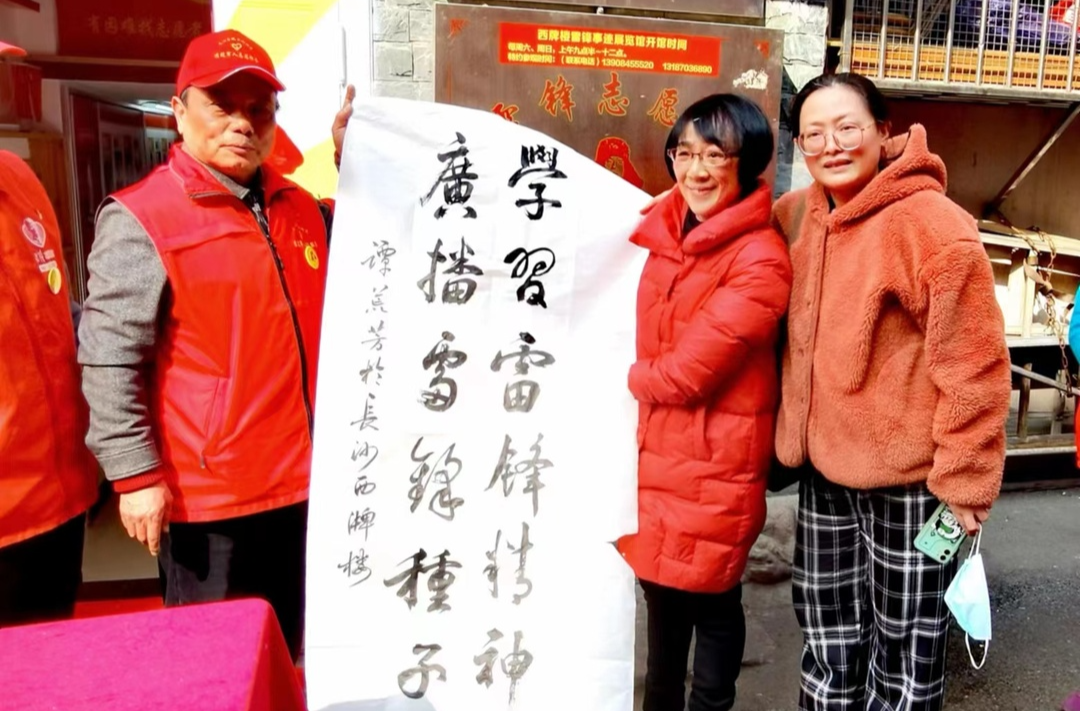 西牌楼雷锋事迹展览馆开馆时间
每周六、周日,上午九点半一十二点。
特约参观时间:(联系电话)13908455520 13187036890
锋志愿
學習雷锋精神
廣播雷鋒種子
芳於長沙西牌楼